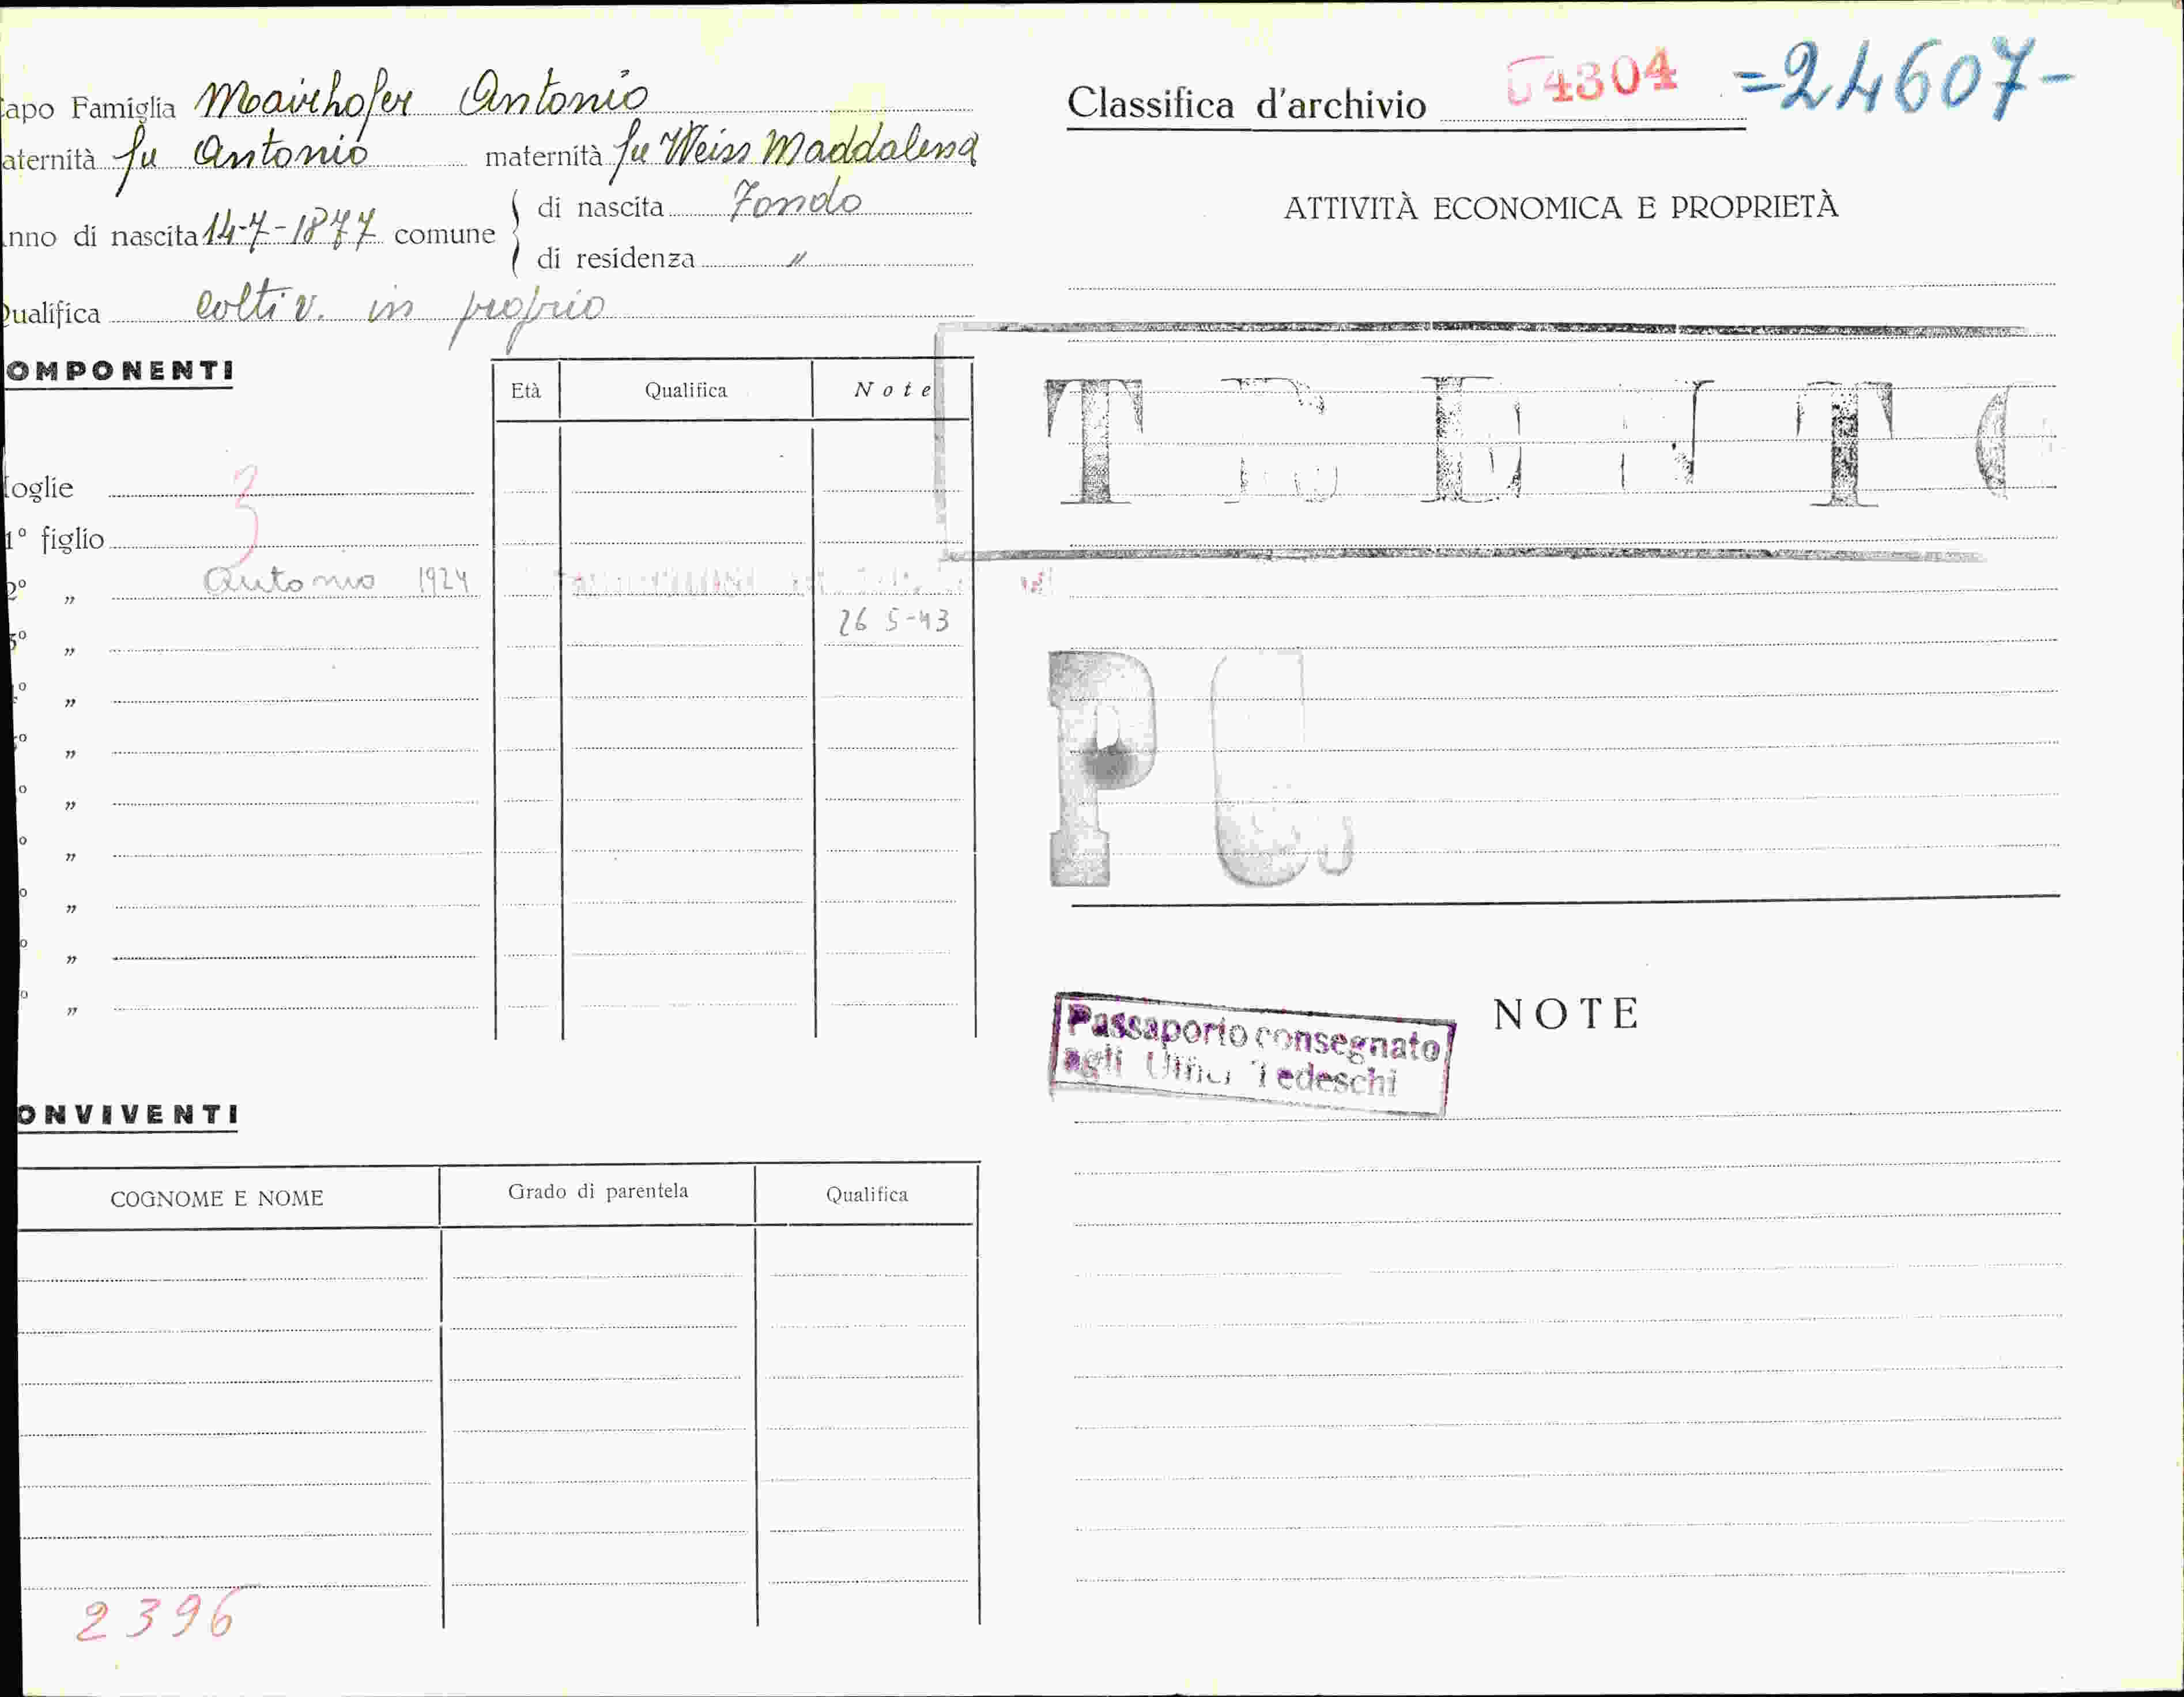 apo Famiglia Mairhofer Antonio
aternità fu Antonio maternità fu Weiss Maddalena
nno di nascita 14-7-1877 comune di nascita Fondo
di residenza "
Qualifica coltiv. in proprio
OMPONENTI
Età Qualifica Note
oglie 3
1º figlio
2º " Antonio 1924
26 5-43
3º "
º "
º "
º "
º "
º "
º "
º "
ONVIVENTI
COGNOME E NOME Grado di parentela Qualifica
2396
Classifica d'archivio 04304 =24607-
ATTIVITÀ ECONOMICA E PROPRIETÀ
TRENTO
P
NOTE
Passaporto consegnato
agli Uffici Tedeschi